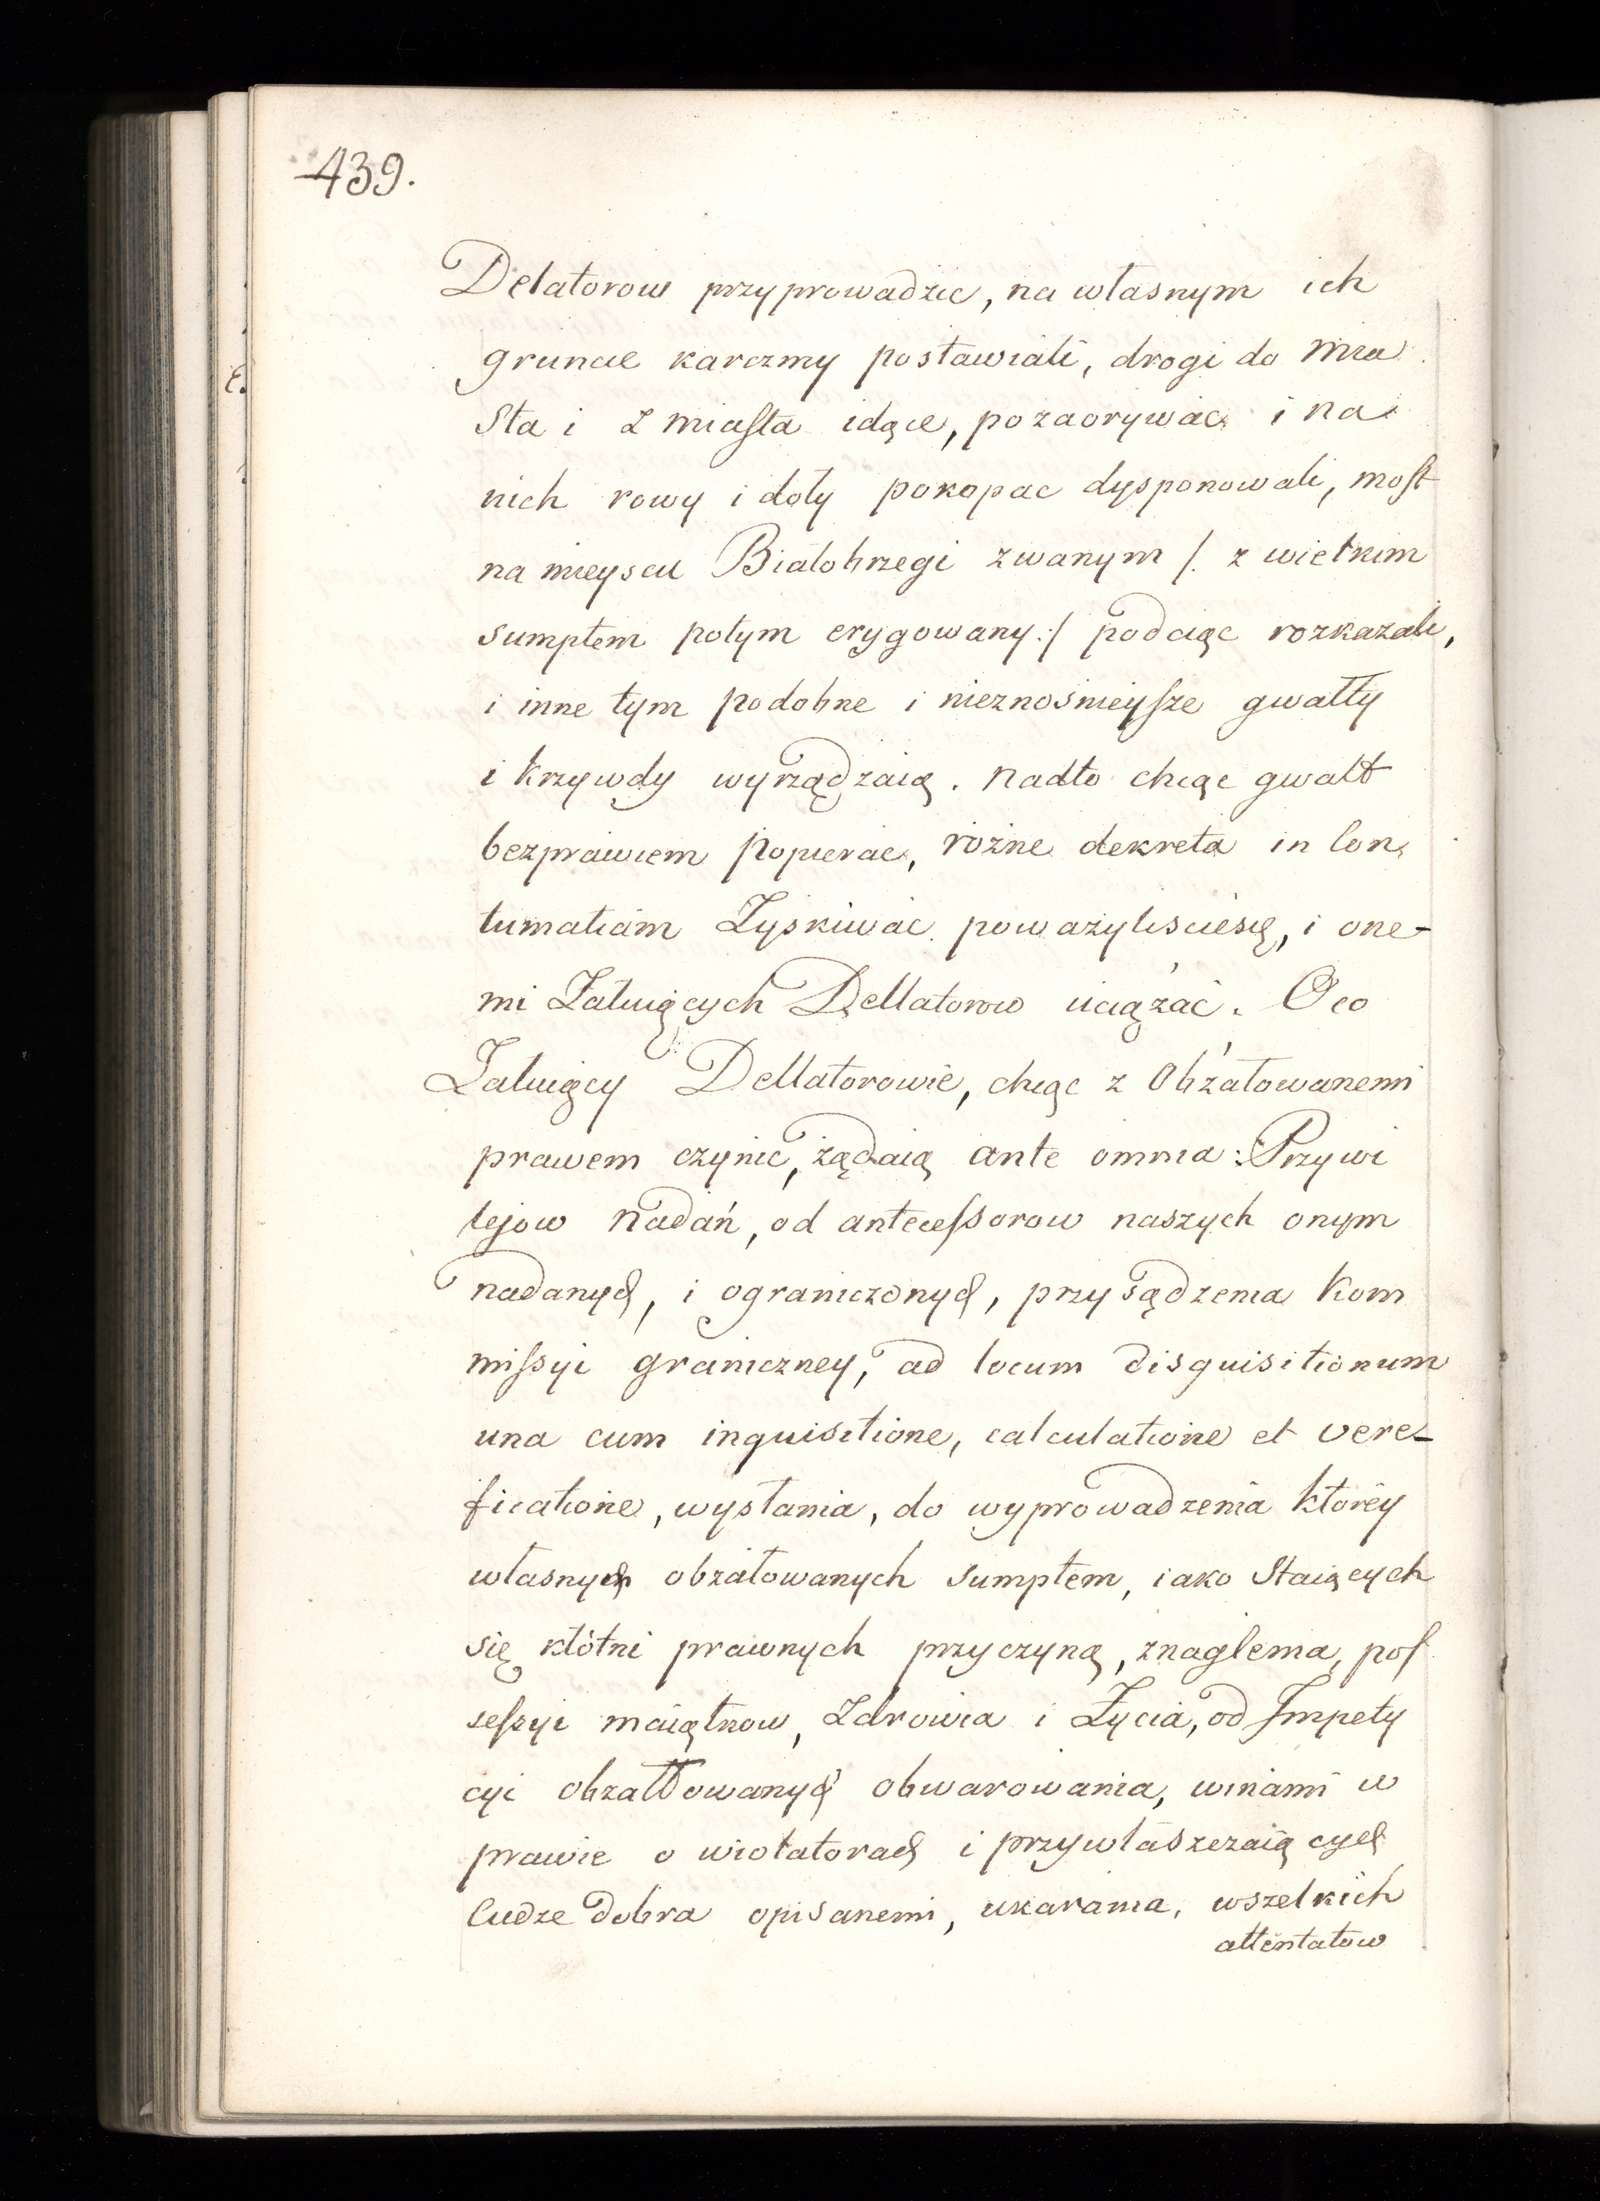 439.
Delatorow przyprowadzic, na własnym ich
gruncie karczmy postawiali, drogi do mia
sta i z miasta idące, pozaorywać i na
nich rowy i doły pokopac dysponowali, most
na mieyscu Białobrzegi zwanym /: z wielkim
sumptem potym erygowany :/ podciąc rozkazali,
i inne tym podobne i nieznosnieysze gwałty
i krzywdy wyrządzaią. nadto chcąc gwałt
bezprawiem popierac, rózne dekreta in con
tumatiam Zyskiwać poważyliscie się, i one-
mi Żaluiących Dellatorow uciążać. O co
Żaluiący Dellatorowie, chcąc z Obżałowanemi
prawem czynic, żądaią ante omnia: Przywi
lejow nadań, od antecessorow naszych onym
nadanych, i ograniczonych, przysądzenia Kom
missyi graniczney, ad locum disquisitionum
una cum inquisitione, calculatione et vere-
ficatione, wysłania, do wyprowadzenia którey
własnych obżałowanych sumptem, iako staiących
się kłótni prawnych przyczyną, znaglenia, pos
sessyi maiątkow, Zdrowia i Życia, od Impety
cyi obżałłowanych obwarowania, winami w
prawie o wiolatorach i przywłaszczaiących
Cudze dobra opisanemi, ukarania, wszelkich
attentatow